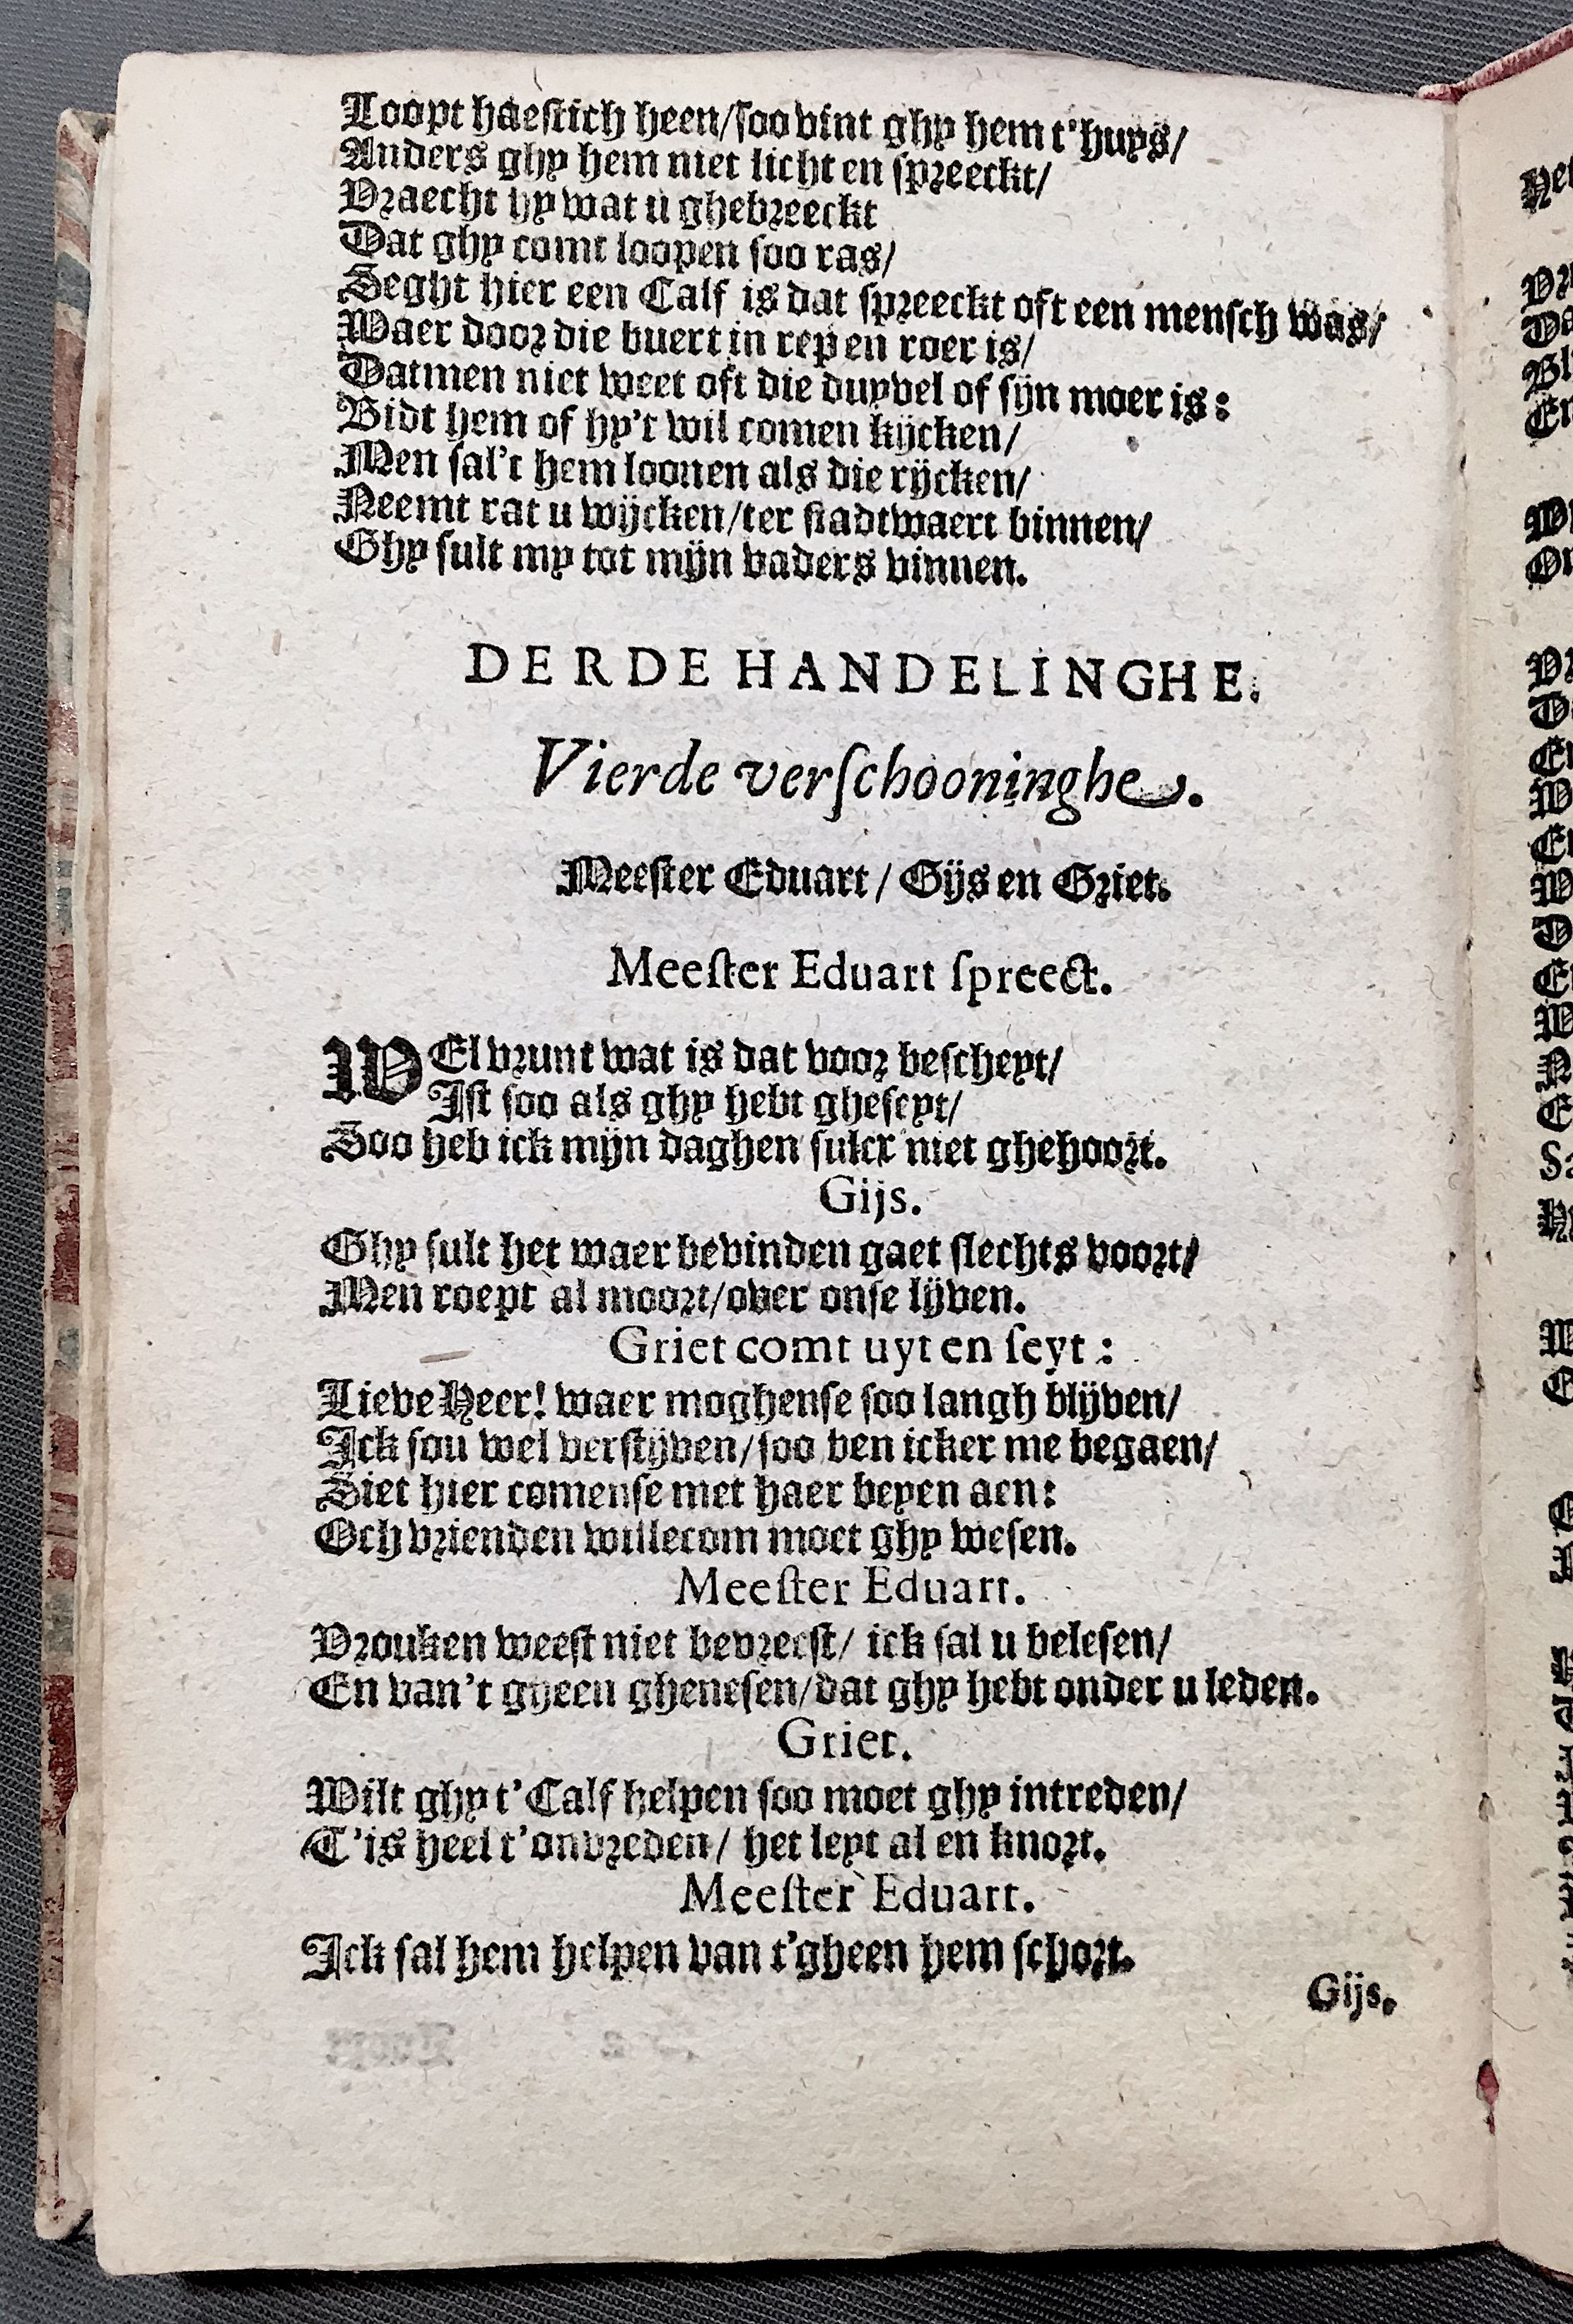 Loopt haestich heen/soo vint ghy hem t'huys/
Anders ghy hem niet licht en spreeckt/
Vraecht hy wat u ghebreeckt
Dat ghy comt loopen soo ras/
Seght hier een Calf is dat spreeckt oft een mensch was/
Waer door die buert in rep en roer is/
Datmen niet weet oft die duyvel of sijn moer is:
Bidt hem of hy't wil comen kijcken/
Men sal't hem loonen als die rijcken/
Neemt rat u wijcken/ter stadtwaert binnen/
Ghy sult my tot mijn vaders vinnen.
DERDE HANDELINGHE.
Vierde verschooninghe.
Meester Eduart / Gijs en Griet.
Meester Eduart spreect.
WEl vrunt wat is dat voor bescheyt/
Ist soo als ghy hebt gheseyt/
Soo heb ick mijn daghen sulcx niet ghehoort.
Gijs.
Ghy sult het waer bevinden gaet slechts voort/
Men roept al moort/over onse lijven.
Griet comt uyt en seyt :
Lieve Heer! waer moghense soo langh blijven/
Ick sou wel verstijven/soo ben icker me begaen/
Siet hier comense met haer beyen aen:
Och vrienden willecom moet ghy wesen.
Meester Eduart.
Vrouken weest niet bevreest/ ick sal u belesen/
En van't gheen ghenesen/dat ghy hebt onder u leden.
Griet.
Wilt ghy t'Calf helpen soo moet ghy intreden/
T'is heel t'onvreden/ het leyt al en knort.
Meester Eduart.
Ick sal hem helpen van t'gheen hem schort.
Gijs.